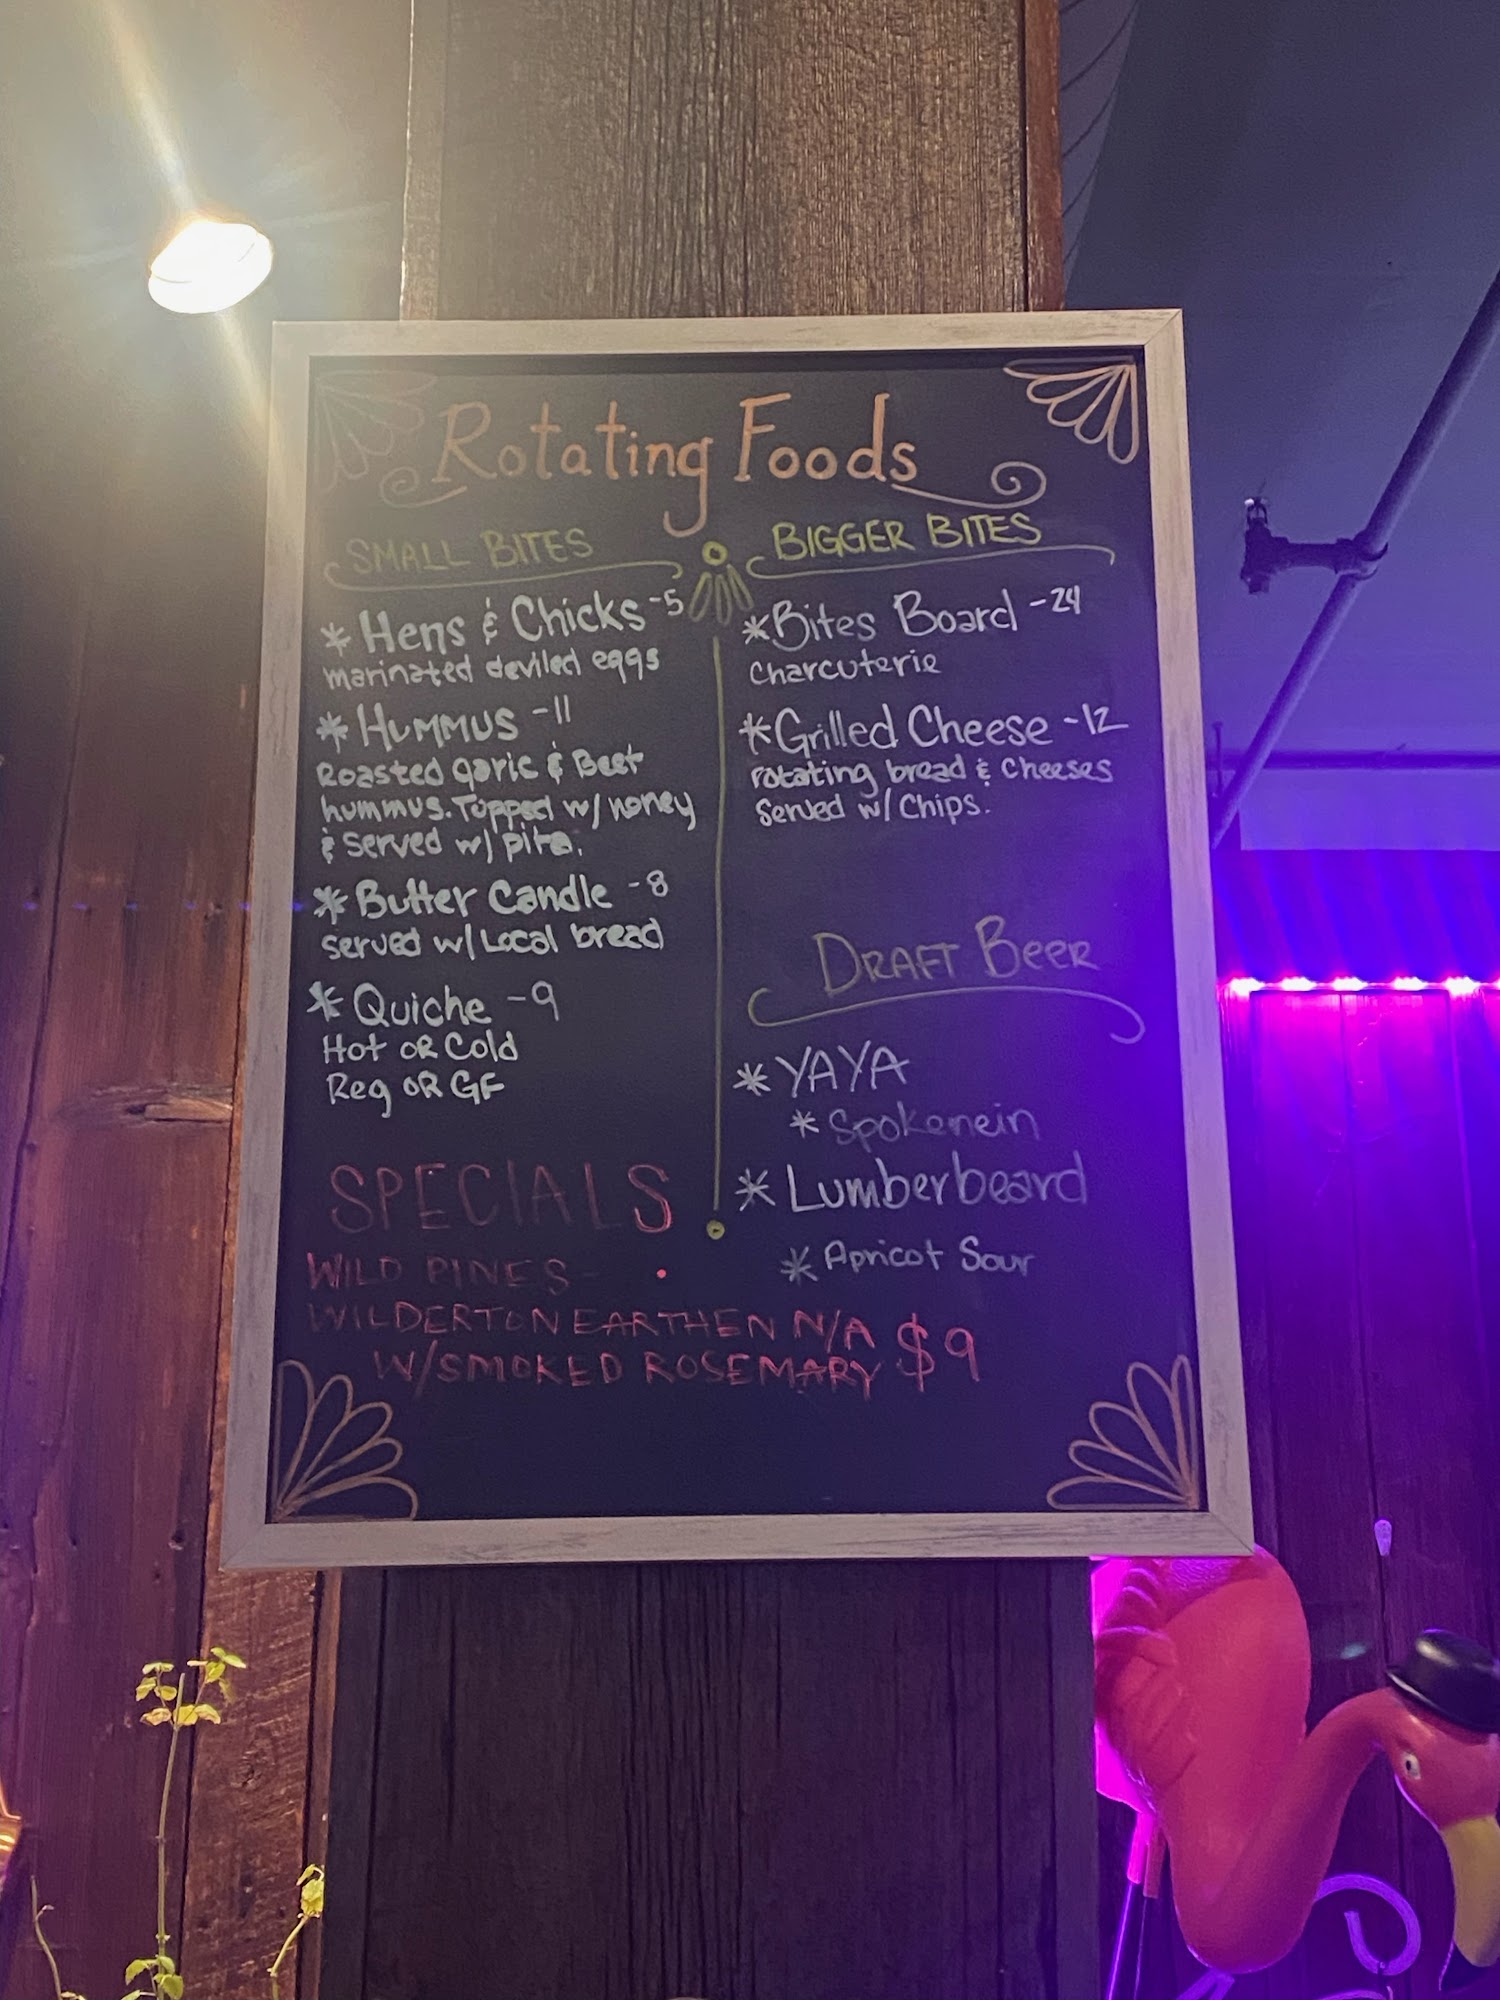 Rotating Foods
SMALL BITES
* Hens & Chicks -5
marinated deviled eggs
* Hummus -11
Roasted garic & Beet
hummus. Topped w/ honey
& served w/ pita.
* Butter Candle -8
served w/ Local bread
* Quiche -9
Hot OR Cold
Reg OR GF
BIGGER BITES
* Bites Board -24
Charcuterie
* Grilled Cheese -12
rotating bread & cheeses
Served w/ Chips.
DRAFT BEER
* YAYA
* Spokenein
* Lumberbeard
* Apricot Sour
SPECIALS
WILD PINES -
WILDERTON EARTHEN N/A
W/SMOKED ROSEMARY $9